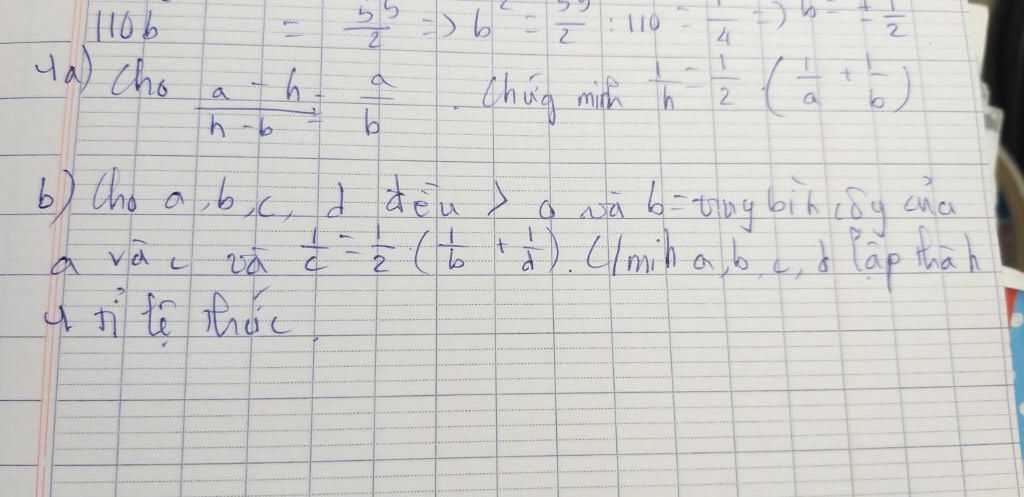 110b = 55/2 => b² = 55/2 : 110 = 1/4 => b = ± 1/2
4a) Cho a - h / h - b = a/b . Chứg minh 1/h = 1/2 . (1/a + 1/b)
b) Cho a, b, c, d đều > 0 và b = trug bìh cộg của
a và c và 1/c = 1/2 . (1/b + 1/d). C/mih a, b, c, d lập thàh
4 tỉ lệ thức.